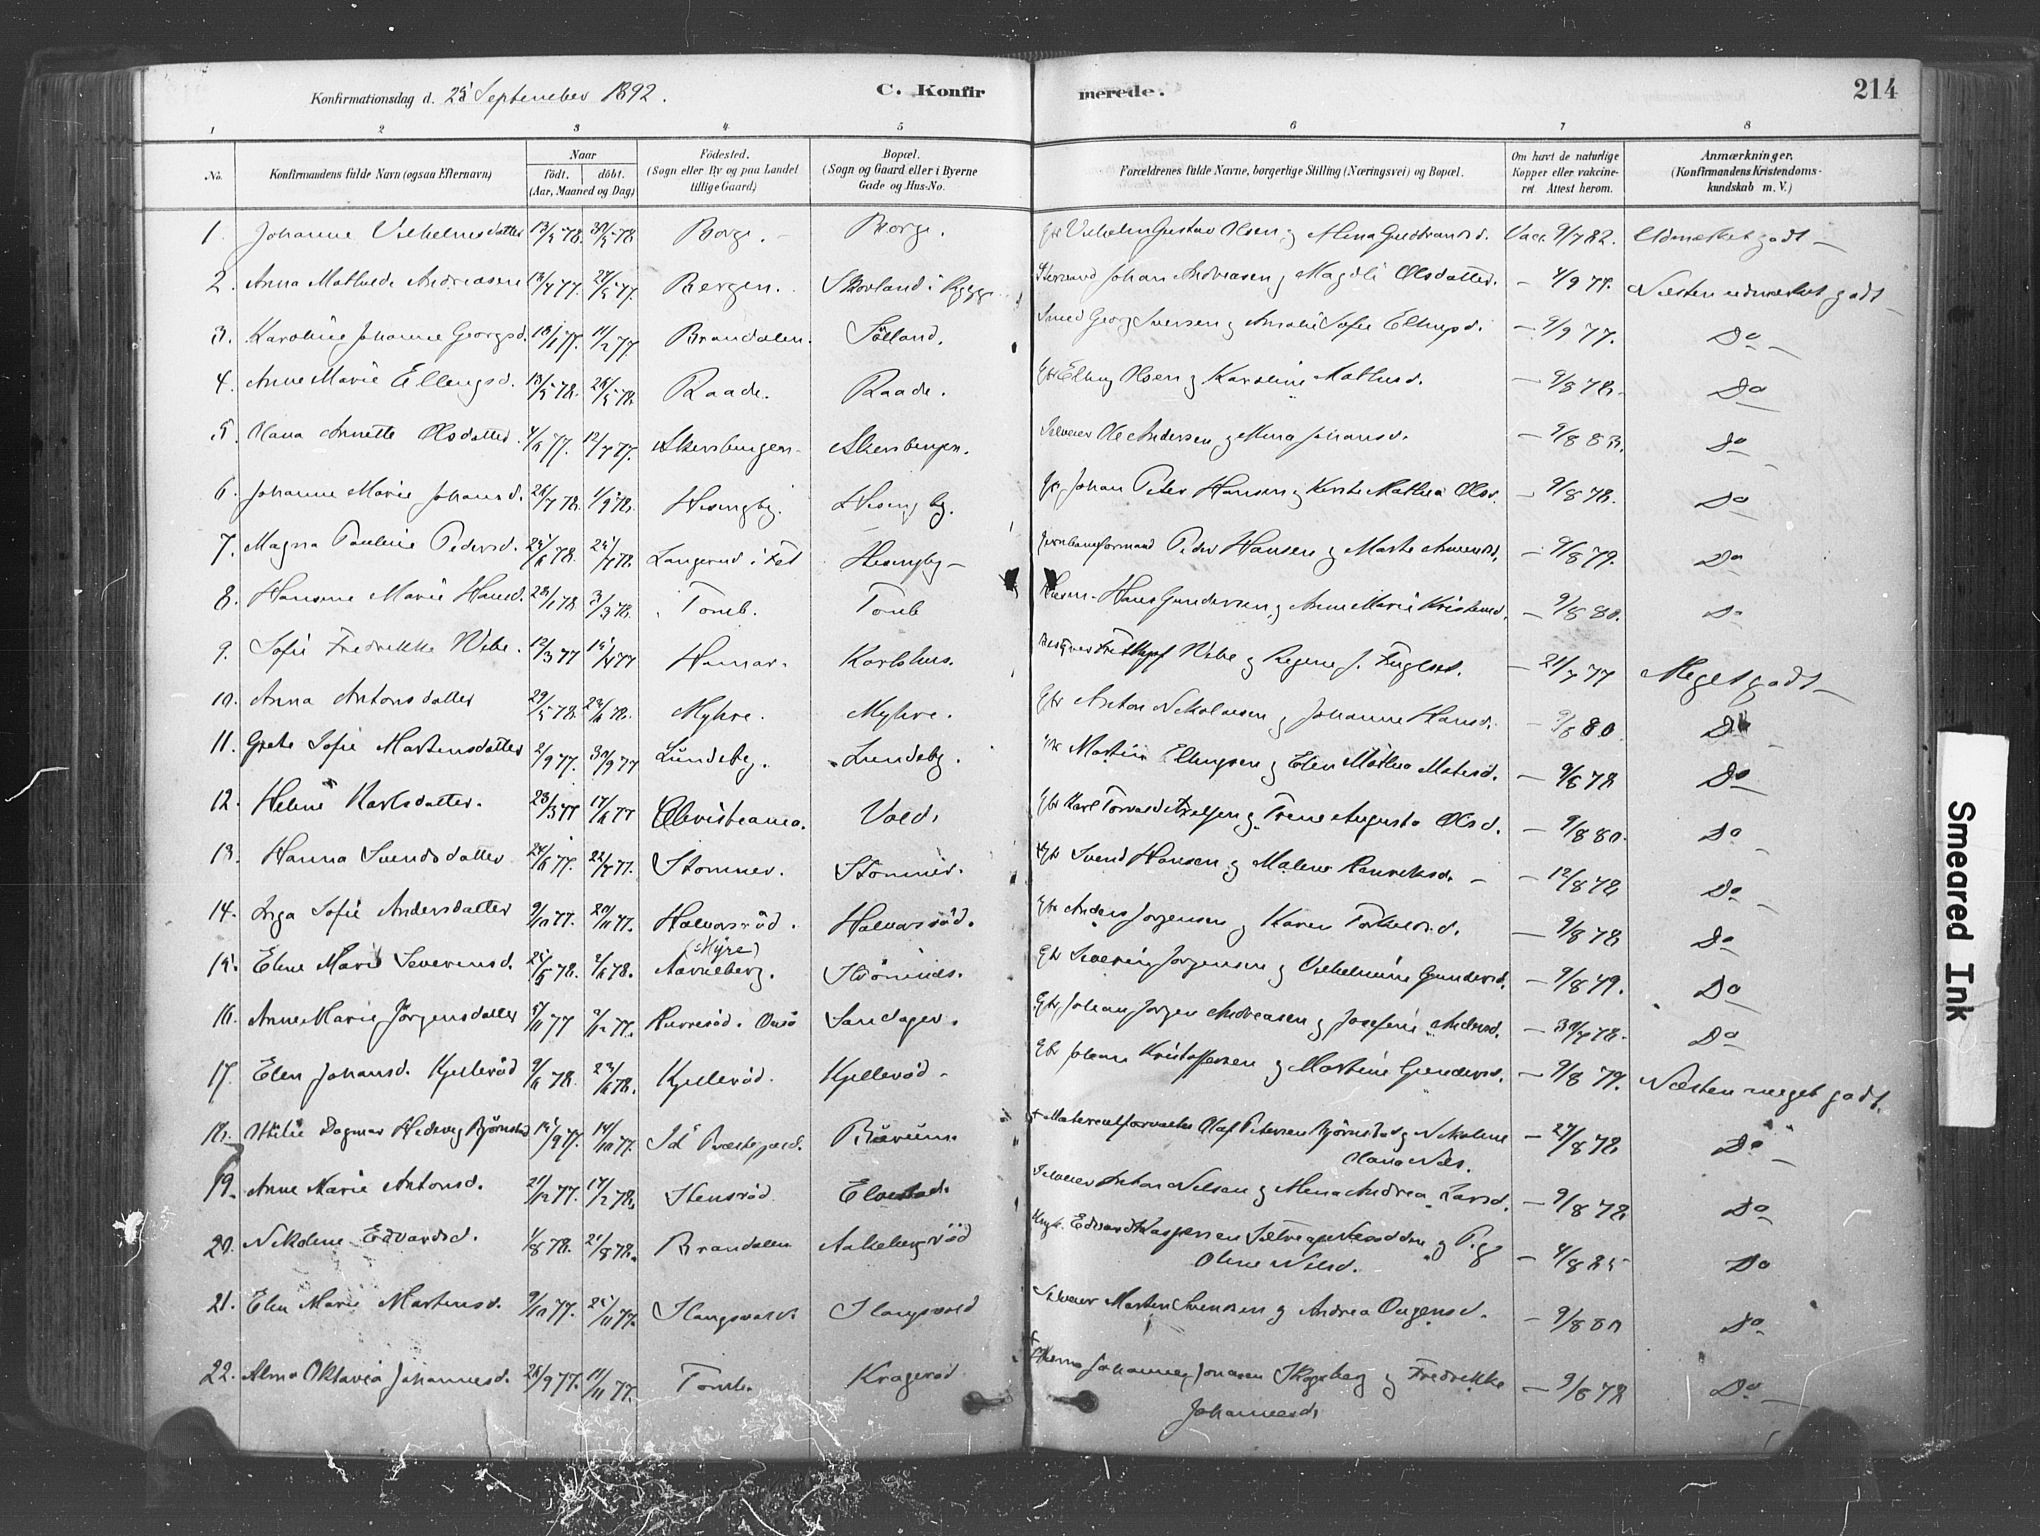 Konfirmationsdag d. 25 September 1892.
C. Konfirmerede.
214
1 2 3 4 5 6 7 8
No. Konfirmandens fulde Navn (ogsaa Efternavn) Naar født. døbt. (Aar, Maaned og Dag) Fødested. (Sogn eller By og paa Landet tillige Gaard) Bopæl. (Sogn og Gaard eller i Byerne Gade og Hus-No. Forældrenes fulde Navne, borgerlige Stilling (Næringsvei) og Bopæl. Om havt de naturlige Kopper eller vakcineret Attest herom. Anmærkninger. (Konfirmandens Kristendomskundskab m. V.)
1. Johanne Vilhelmsdatter 13/3 78. 30/5 78 Borge. Borge. Gbr Vilhelm Gustav Olsen og Mina Gudbrandsd. Vacc. 9/7 82. Udmærket godt
2. Anna Mathilde Andreasen 13/4 77. 27/5 77. Bergen. Skovland i Rygge Johan Andreasen og Magdli Olsdatter. 4/9 77. Næsten udmærket godt
3. Karoline Johanne Georgsd. 13/1 77. 11/2 77. Brandalen. Solland. Smed Georg Iversen og Amalie Sofie Ellingsd. 9/9 77. Do
4. Anne Marie Ellingsd. 13/5 78. 26/5 78. Raade. Raade. Gbr Elling Olsen og Karoline Mathisd. 9/8 78. Do
5. Olava Annette Olsdatter 4/6 77. 12/7 77. Akersbergen. Akersbergen. Selveier Ole Andersen og Mina Johansd. 9/8 83. Do
6. Johanne Marie Johansd. 28/7 78. 1/9 78. Hesengby. Hesengby. Gbr Johan Peter Hansen og Kirste Mathea Olsd. 9/8 78. Do
7. Magna Pauline Pedersd. 25/6 78. 25/7 78. Langerud i Fet Hesengby Jernbaneformand Peder Hansen og Marthe 9/8 79. Do
8. Hansine Marie Hansd. 28/1 78 3/3 78. Tomb. Tomb Husm. Hans Gundersen og Anne Marie Kristensd. 9/8 80. Do
9. Sofie Fredrikke Wibe. 12/3 77 15/4 77 Hamar. Karlshus. Wibe og Regine J. 21/7 77 Meget godt
10. Anna Antonsdatter 29/5 78. 23/6 78. Myhre. Myhre. Gbr Anton Nikolaisen og Johanne Hansd. 9/8 80. Do
11. Grete Sofie Martensdatter 2/9 77. 30/9 77 Lundeby. Lundeby. Martin Ellingsen og Elen Mathea Matisd. 9/8 78 Do
12. Helene Karlsdatter. 23/3 77 17/6 77 Christiania. Vold. Gbr Karl Torvald Axelsen og Trine Augusta Olsd. 9/8 80. Do
13. Hanna Svendsdatter 24/6 77. 22/7 77. Stomner. Stomner. Gbr Svend Hansen og Malene Henriksd. 12/8 78 Do
14. Inga Sofie Andersdatter 9/10 77. 20/11 77. Halvorsrød. Halvorsrød. Gbr Anders Jørgensen og Karen Torkelsd. 9/8 78 Do
15. Elene Marie Severinsd. 25/5 78. 2/6 78. (Myre) Aarneberg. Strømnes. Gbr Severin Jørgensen og Vilhelmine Gundersd. 9/8 79. Do
16. Anne Marie Jørgensdatter 5/11 77 2/12 77. Rurresød. Onsø Sandager. Gbr Johan Jørgen Andreasen og Josefine Andersd. 30/7 78. Do
17. Elen Johansd. Kjellerød 9/6 78. 23/6 78. Kjellerød. Kjellerød Gbr Johan Kristoffersen og Martine Gundersd. 9/8 79. Næsten meget godt.
18. Ottilie Dagmar Hedevig Bjørnstad 15/9 77. 14/10 77. Id Præstegaard. Bærum. Materialforvalter Olaf Petersen Bjørnstad og Nikoline Olava Næs. 27/8 78 Do
19. Anne Marie Antonsd. 21/12 77. 17/2 78. Stensrød. Elvestad. Selveier Anton Nilsen og Mina Andrea Larsd. 9/8 78. Do
20. Nikoline Edvardsd. 1/8 78. 21/8 78. Brandalen Aakebergrød Ungk. Edvard Kaspersen og Pige Oline Nilsd. 4/8 85 Do
21. Elen Marie Martinsd. 9/10 77. 25/11 77. Slangsvold. Slangsvold Selveier Marten Svendsen og Andrea Ougensd. 9/8 80 Do
22. Alma Oktavia Johannesd. 26/9 77. 11/11 77. Tomb. Kragerød Johannes Jonasen Skogsberg og Fredrikke Johannesd. 9/8 78 Do
Smeared Ink